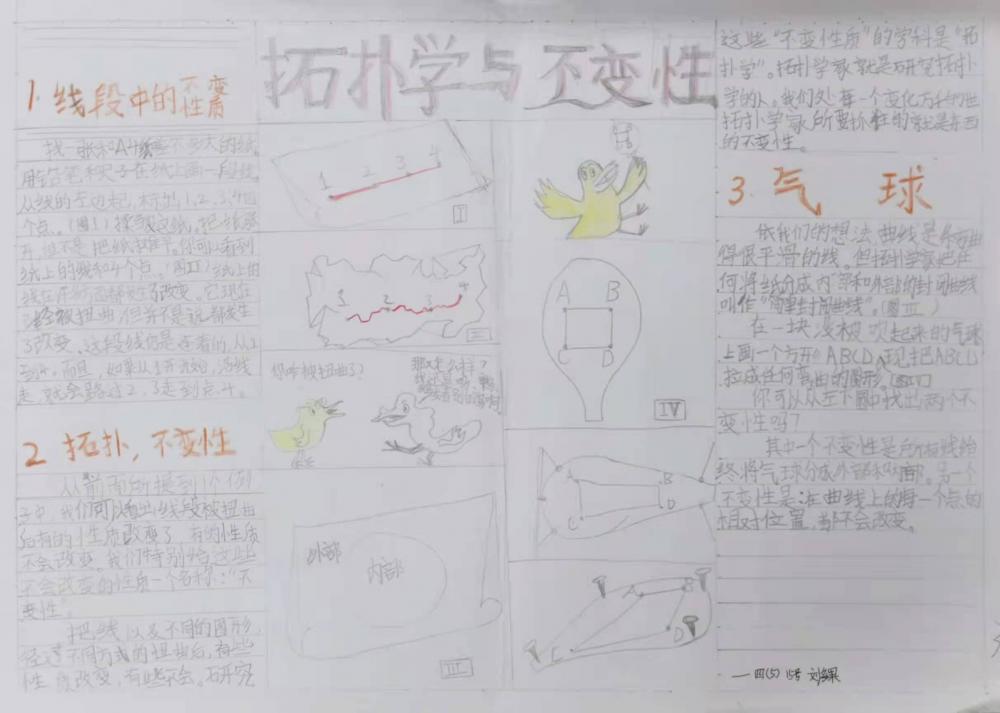 拓扑学与不变性
1. 线段中的不变性质
找一张和A4纸差不多大的纸,
用铅笔和尺子在纸上画一段线,
从线的左边起,标出1,2,3,4四
个点。(图I)揉皱这纸,把纸展
开,但不是把纸摊平。你可以看到
纸上的线和4个点。(图II)纸上的
改变。它现在
已经被扭曲,但并不是说都发生
了改变。这段线仍是连着的,从1
到4。而且,如果从1开始,沿线
走,就会路过2,3走到点4。
2 拓扑,不变性
从前面所提到的例
子中,我们可以看出线段被扭曲
后有的性质改变了,有的性质
不会改变。我们特别给这些
不会改变的性质一个名称:“不
变性”。
把线以及不同的图形,
经过不同方式的扭曲后,有些
性质改变,有些不会。研究
1 2 3 4
I
1 2 3 4
II
你咋被扭曲了?
外部
内部
III
A B
C D
IV
A B
C D
A B
C D
这些“不变性质”的学科是“拓
扑学”。拓扑学家就是研究拓扑
学的人。我们处在一个变化万千的世
拓扑学家所要抓住的就是东西
的不变性。
3. 气球
依我们的想法,曲线是条弯曲
得很平滑的线。但拓扑学家把任
何将纸分成内部和外部的封闭曲线
叫作“简单封闭曲线”。(图III)
在一块没被吹起来的气球
上画一个方形ABCD,现把ABCD
拉成任何弯曲的图形。(图IV)
你可以从左下图中找出两个不
变性吗?
其中一个不变性是所有线始
终将气球分成外部和内部。另一个
不变性是:在曲线上的每一个点的
相对位置,都不会改变。